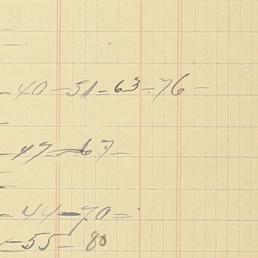 -40-51-63-76-
-47-67-
-44-70=
-55-80